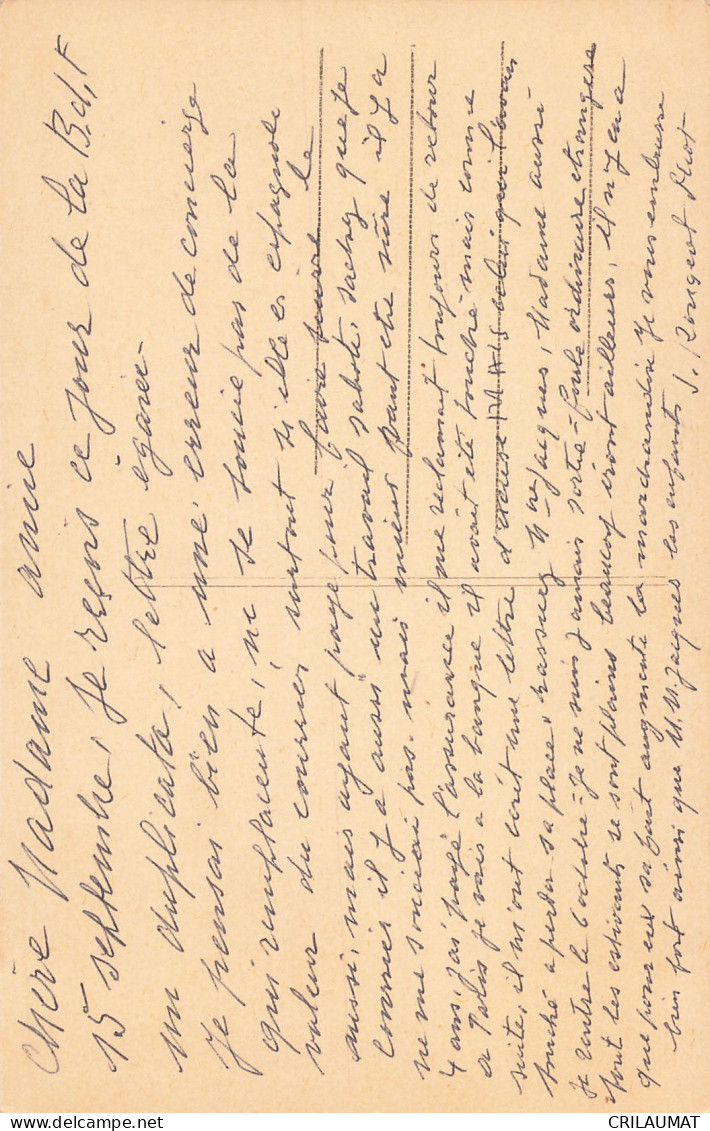 Chère Madame amie
15 septembre, Je reçois ce jour de la B.d.F
un duplicata, lettre égarer-
Je pensai bien a une erreur de concierge
qui remplacente, ne se soucie pas de la
valeur du courrier surtout si elle es espagnole
aussi, mais ayant payé pour faire suivre le
courrier il y a aussi un travail saboté, sachez que je
ne me souciai pas mais mieux vaut etre sûre il y a
4 ans, j'ai payé l'assurance il me reclamait toujours de retour
a Paris je vais a la banque il avait été touché mais comme
suite, il m'ont écrit une lettre d'excuse MAIS celui qui l'avais
touché a perdu sa place, rassurez Mr Jacques, Madame aussi
Je rentre le 6 octobre - Je ne suis jamais sortie - foule ordinaire etrangere
tout les estivants se sont plains beaucoup iront ailleurs, il n'y en a
que pour eux sa fait augmenté la marchandise Je vous embrasse
bien fort ainsi que M. M. Jacques les enfants J. Rougeot
CRILAUMAT